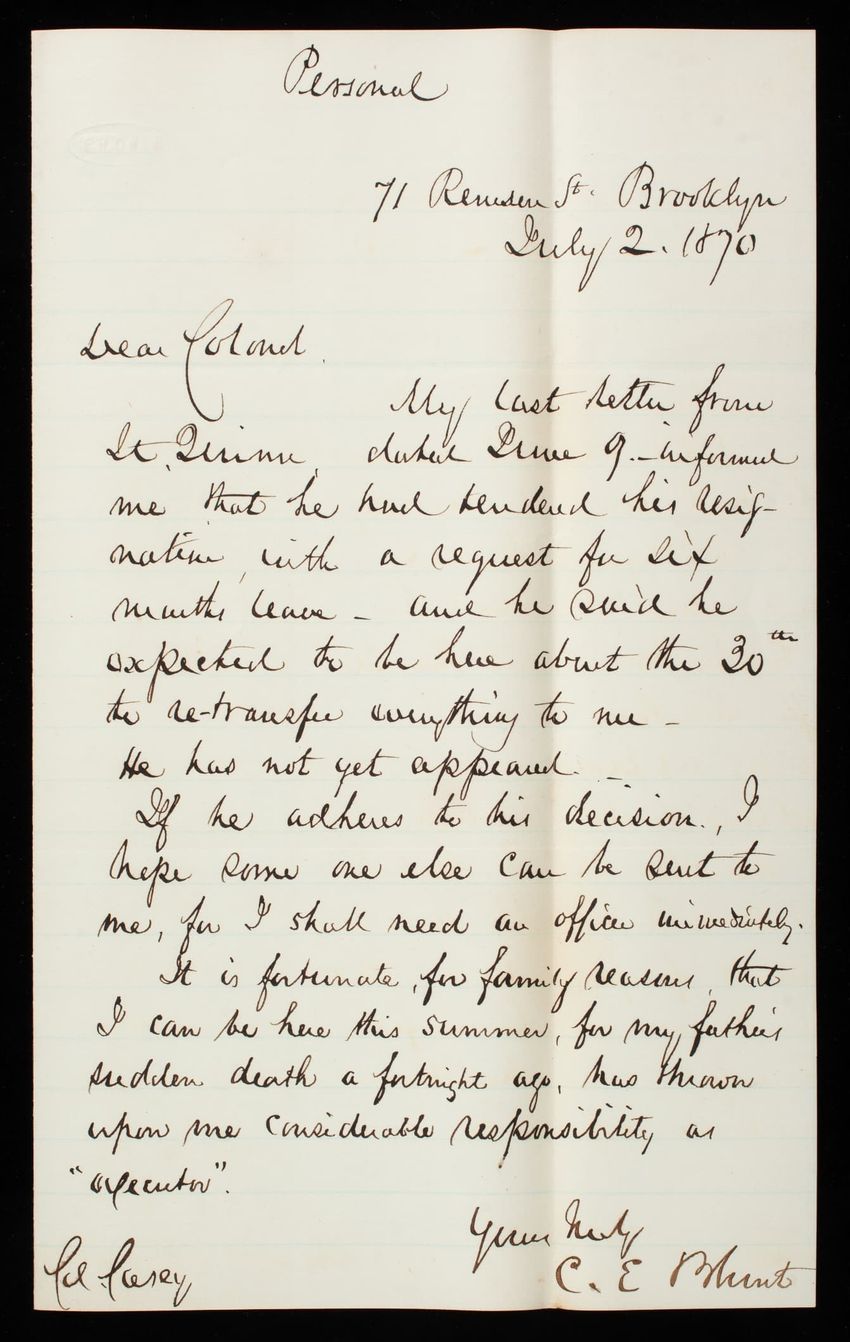 Personal
71 Remsen St. Brooklyn
July 2. 1870
Dear Colonel.
My last letter from
Lt. dated June 9.- informed
me that he had tendered his resig-
nation, with a request for six
months leave - and he said he
expected to be here about the 30th
to re-transfer everything to me -
He has not yet appeared. -
If he adheres to his decision., I
hope some one else can be sent to
me, for I shall need an officer immediately.
It is fortunate, for family reasons, that
I can be here this summer, for my father's
sudden death a fortnight ago, has thrown
upon me considerable responsibility as
"executor".
Yours truly
C. E Blunt
Col. Casey